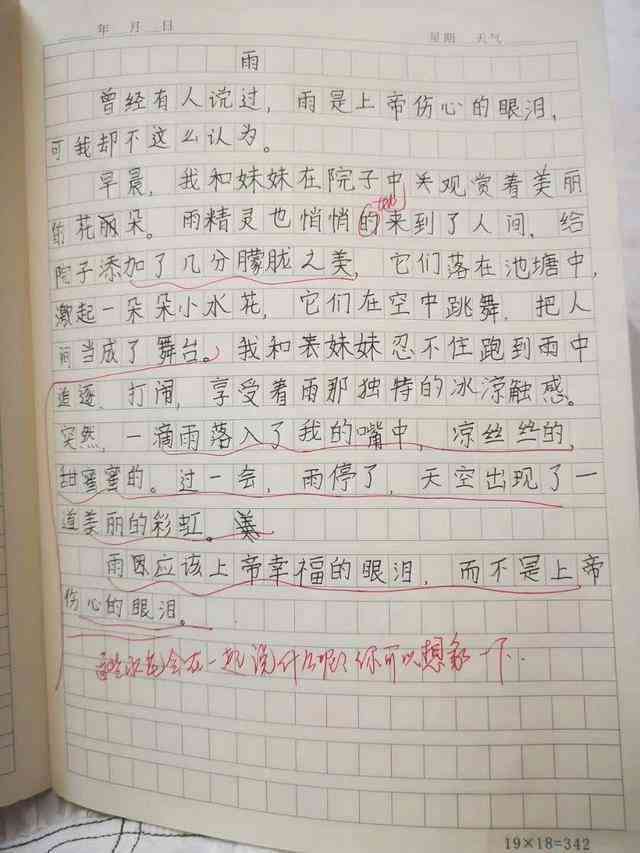 年 月 日 星期 天气
雨
曾经有人说过，雨是上帝伤心的眼泪，
可我却不这么认为。
早晨，我和妹妹在院子中观赏着美丽
的花朵。雨精灵也悄悄的来到了人间，给
院子添加了几分朦胧之美，它们落在池塘中，
激起一朵朵小水花，它们在空中跳舞，把人
间当成了舞台。我和表妹妹忍不住跑到雨中
追逐、打闹，享受着雨那独特的冰凉触感。
突然，一滴雨落入了我的嘴中，凉丝丝的，
甜蜜蜜的。过一会，雨停了，天空出现了一
道美丽的彩虹。
雨应该上帝幸福的眼泪，而不是上帝
伤心的眼泪。
会在一起说什么呢？你可以想象一下.
19×18=342